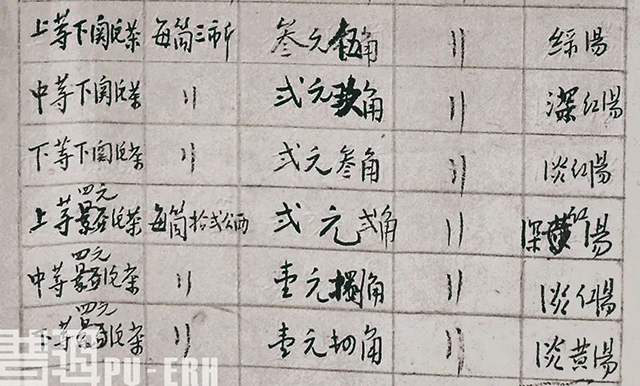 上等下関沱茶 每筒三市斤 叁元伍角 〃 綠湯
中等下関沱茶 〃 弍元玖角 〃 深红湯
下等下関沱茶 〃 弍元叁角 〃 淡红湯
四元
上等景谷沱茶 每筒拾弍公两 弍元弍角 〃 深黄湯
四元
中等景谷沱茶 〃 壹元捌角 〃 淡红湯
四元
下等景谷沱茶 〃 壹元四角 〃 淡黄湯
PU-ERH